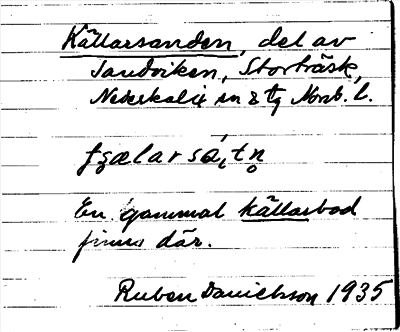 Källarsanden, del av
Sandviken, Storträsk,
Nederkalix sn & tg Norrb. l.
fʒælarsá,tn̥
En gammal källarbod
finns där.
Ruben Danielsson 1935